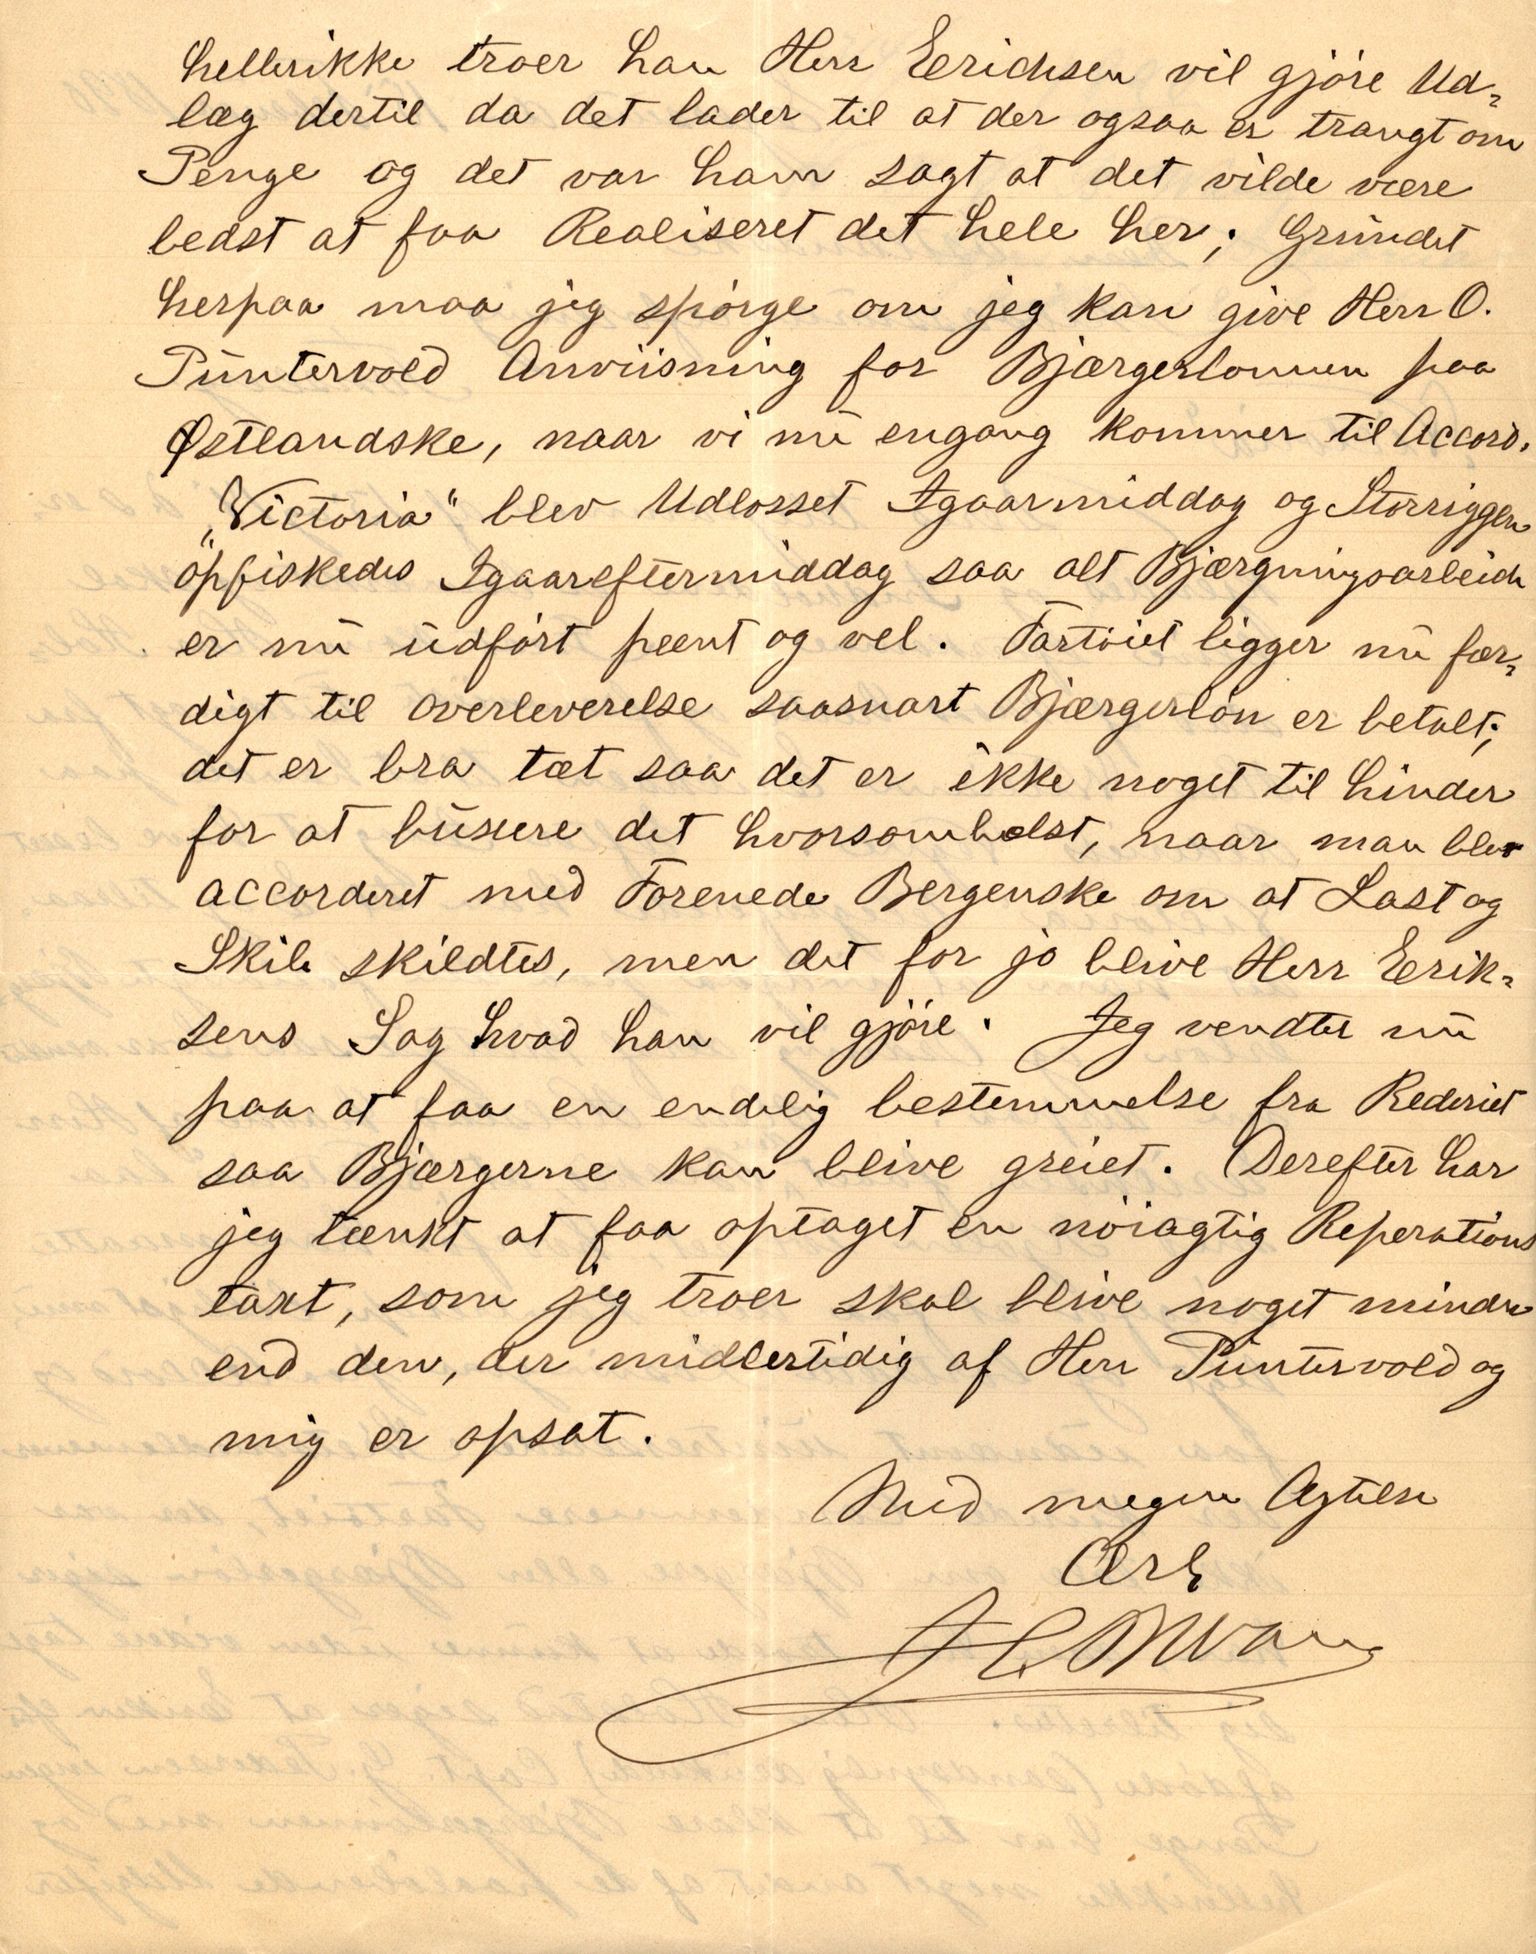 hellerikke troer han Herr Eerichsen vil gjöre Ud-
læg dertil da det lader til at der ogsaa er trangt om
Penge og det var ham sagt at det vilde være
bedst at faa Realiseret det hele her; Grundet
herpaa maa jeg spörge om jeg kan give Herr O.
Puntervold Anviisning for Bjærgerlonnen paa
Østlandske, naar vi nu engang kommer til Accord.
„Victoria" blev Udlosset Igaarmiddag og Storriggen
opfiskedes Igaareftermiddag saa alt Bjærgningsarbeide
er nu udfört peent og vel. Fartöiet ligger nu fær-
digt til overleverelse saasnart Bjærgerlön er betalt;
det er bra tæt saa det er ikke noget til hinder
for at buxere det hvorsomhelst, naar man blev
accorderet med Forenede Bergenske om at Last og
Skib skildtes, men det for jo blive Herr Eerik-
sens Sag hvad han vil gjöre. Jeg vendter nu
paa at faa en endelig bestemmelse fra Rederiet
saa Bjærgerne kan blive greiet. Derefter har
jeg tænkt at faa optaget en nöiagtig Reperations
taxt, som jeg troer skal blive noget mindre
end den, der midlertidig af Herr Puntervold og
mig er opsat.
Med megen Agtelse
Ærb